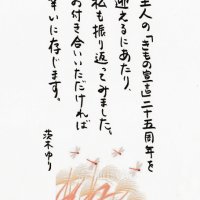 主人の「きもの宣言」二十五周年を
迎えるにあたり、
私も振り返ってみました。
お付き合いいただければ
幸いに存じます。
茨木ゆり